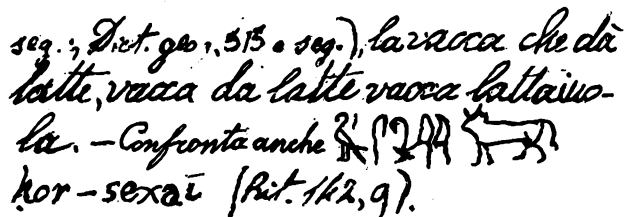 seg.; Dict. geo., 515 e seg.), la vacca che dà
latte, vacca da latte vacca lattaiuo-
la. – Confronta anche
hor – sexaī (Rit. 142, 9).